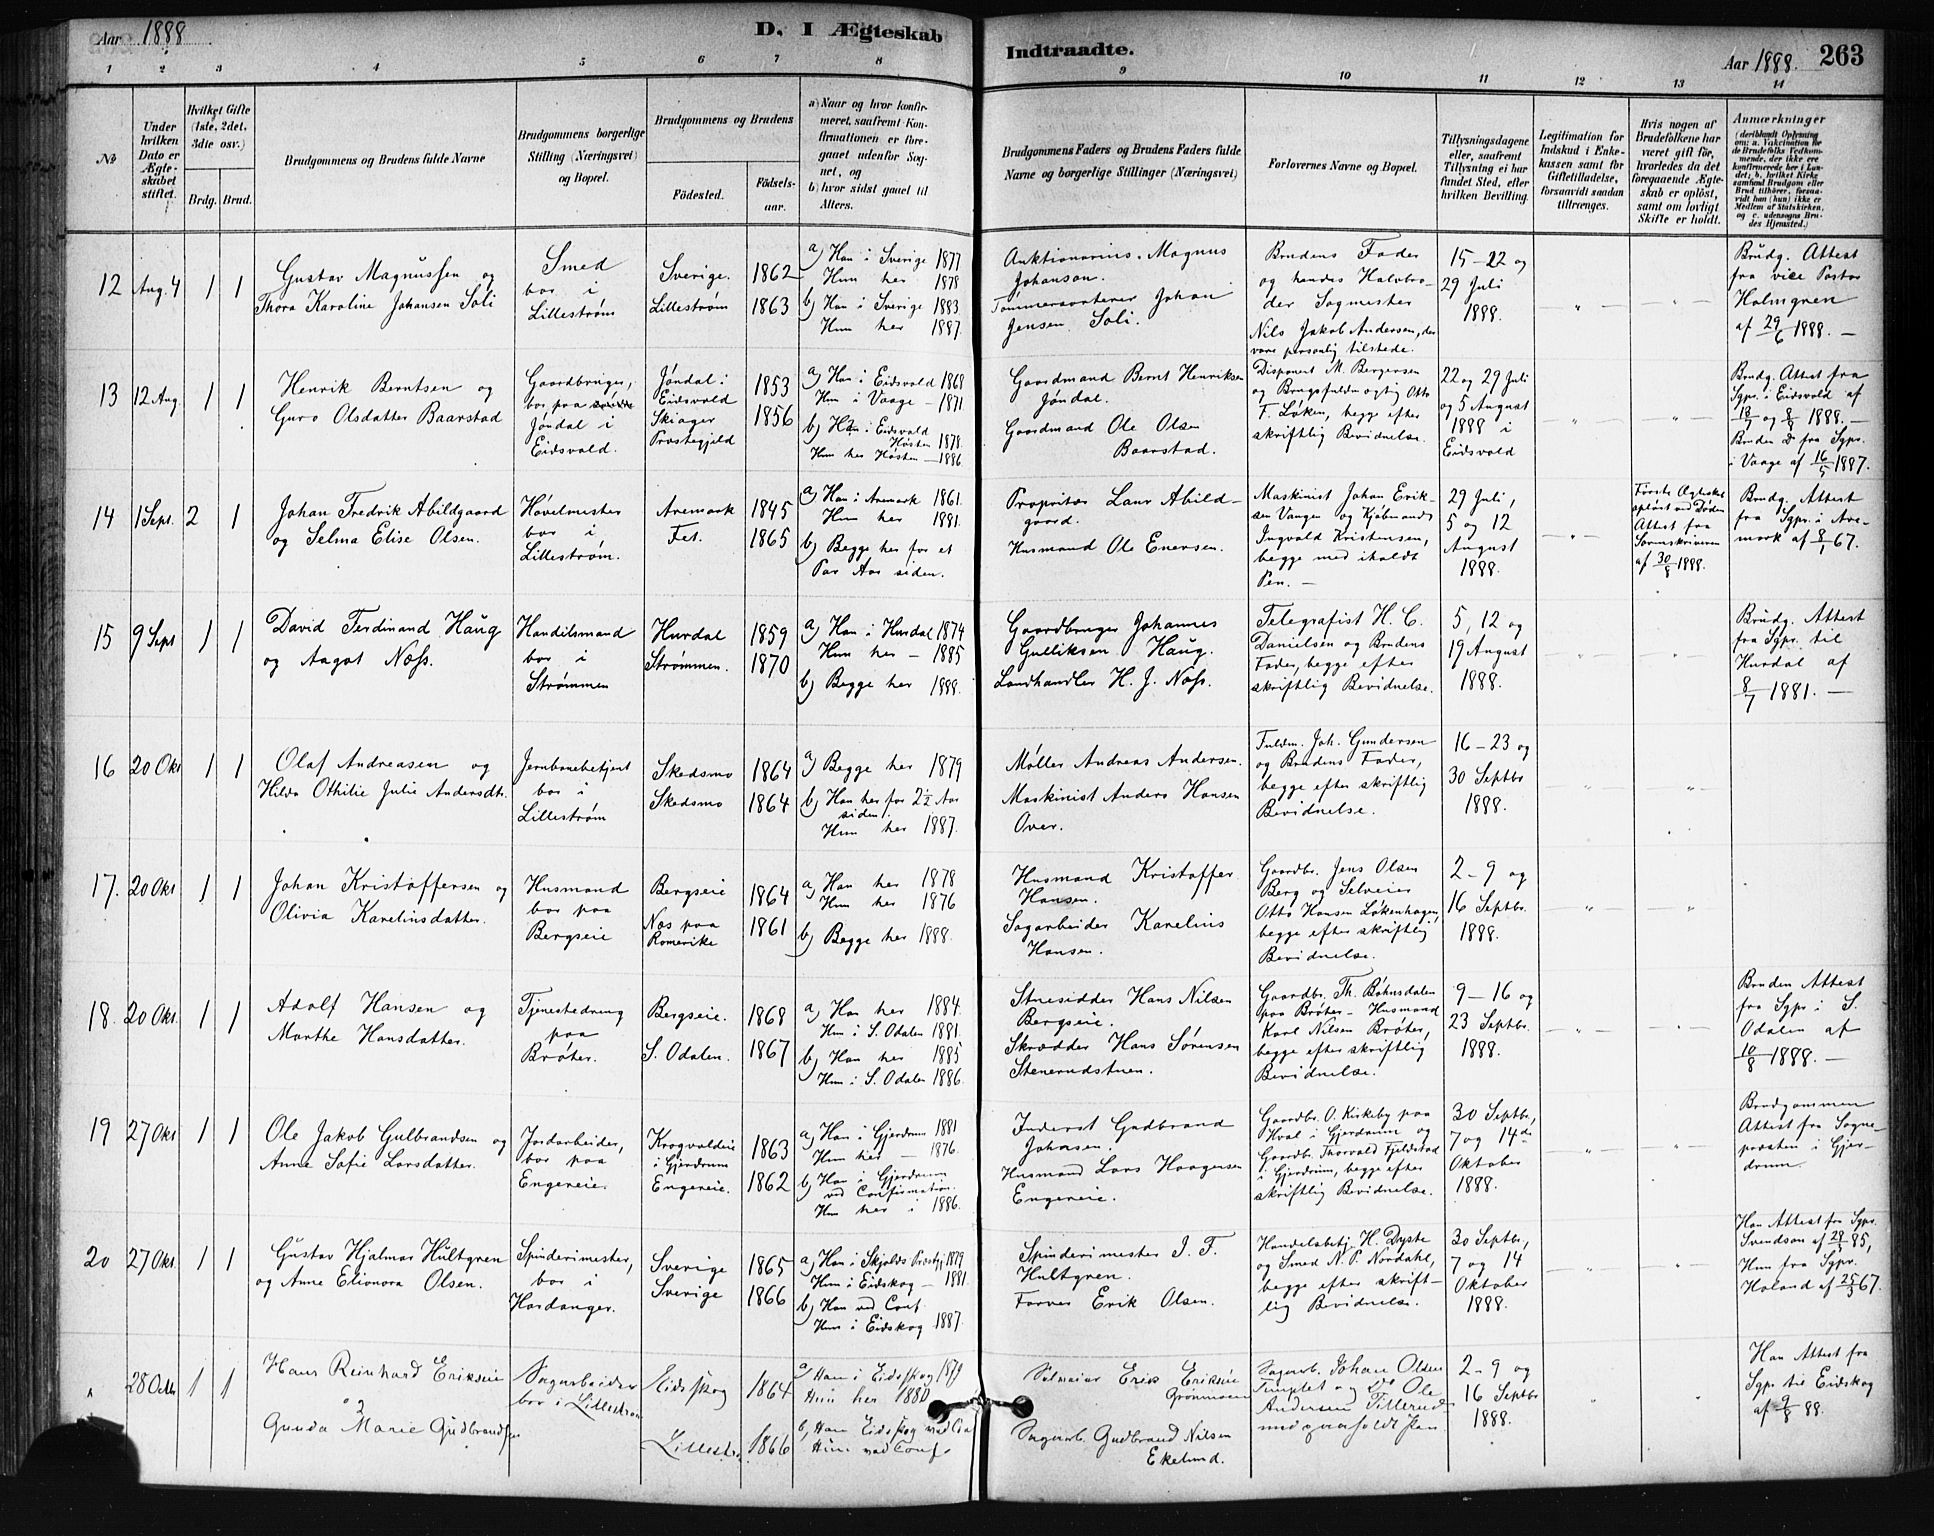 Aar 1888
D. I Ægteskab
Indtraadte.
Aar 1888. 263
1 2 3 4 5 6 7 8 9 10 11 12 13 14
No
Under hvilken Dato er Ægteskabet stiftet.
Hvilket Gifte (1ste, 2det, 3die osv.)
Brdg. Brud.
Brudgommens og Brudens fulde Navne
Brudgommens borgerlige Stilling (Næringsvei) og Bopæl.
Brudgommens og Brudens
Födested.
Födselsaar.
a) Naar og hvor konfirmeret, saafremt Konfirmationen er foregaaet udenfor Sognet, og
b) hvor sidst gaaet til Alters.
Brudgommens Faders og Brudens Faders fulde Navne og borgerlige Stillinger (Næringsvei)
Forlovernes Navne og Bopæl.
Tillysningsdagene eller, saafremt Tillysning ei har fundet Sted, efter hvilken Bevilling.
Legitimation for Indskud i Enkekassen samt for Giftetilladelse, forsaavidt saadan tiltrænges.
Hvis nogen af Brudefolkene har været gift för, hvorledes da det foregaaende Ægteskab er oplöst, samt om lovligt Skifte er holdt.
Anmærkninger
12 Aug. 4 1 1
Gustav Magnussen og
Thora Karoline Johansen Soli
Smed
bor i
Lillestrøm
Sverige. 1862
Lillestrøm 1863
a) Han i Sverige 1877
Hun her 1878
b) Han i Sverige 1883
Hun her 1887.
Auktionarius Magnus
Johanson.
Tømmersorterer Johan
Jensen Soli.
Brudens Fader
og handes Halvbroder Sagmester
Nils Jakob Andersen, der
vare personlig tilstede.
15-22 og
29 Juli
1888.
Brudg. Attest
fra vice Pastor
Holmgren
af 29/6 1888. —
13 12 Aug. 1 1
Henrik Berntsen og
Guro Olsdatter Baarstad
Gaardbruger,
bor paa
Jøndal i
Eidsvold.
Jøndal i
Eidsvold 1853
Skiager
Præstegjeld 1856
a) Han i Eidsvold 1868
Hun i Vaage - 1871
b) Han i Eidsvold
Høsten 1878.
Hun her Høsten - 1886.
Gaardmand Bernt Henriksen
Jøndal.
Gaardmand Ole Olsen
Baarstad.
Disponent M. Bergersen
og Brugsfuldmægtig Otto
T. Løken, begge efter
skriftlig Bevidnelse.
22 og 29 Juli
og 5 August
1888 i
Eidsvold
Brudg. Attest fra
Sgpr. i Eidsvold af
18/7 og 8/8 1888. —
Bruden do fra Sgpr.
i Vaage af 16/5 1887.
14 1 Sept. 2 1
Johan Fredrik Abildgaard
og Selma Elise Olsen.
Høvelmester
bor i
Lillestrøm.
Aremark 1845
Fet. 1865
a) Han i Aremark 1861.
Hun her 1881.
b) Begge her for et
Par Aar siden.
Propritær Laur Abildgaard.
Husmand Ole Enersen.
Maskinist Johan Eriksen Vangen og Kjøbmand
Ingvald Kristensen,
begge med iholdt
Pen. —
29 Juli,
5 og 12
August
1888.
Første Ægteskab
opløst ved Døden
Attest fra
Sorenskriveren
af 30/8 1888.
Brudg. Attest
fra Sgpr. i Aremark af 8/1 67.
15 9 Sept 1 1
David Ferdinand Haug
og Aagot Næss.
Handelsmand
bor i
Strømmen
Hurdal 1859
Strømmen. 1870
a) Han i Hurdal 1874
Hun her - 1885
b) Begge her 1888.
Gaardbruger Johannes
Gulliksen Haug.
Landhandler H. J. Næss.
Telegrafist H. C.
Danielsen og Brudens
Fader, begge efter
skriftlig Bevidnelse.
5, 12 og
19 August
1888.
Brudg. Attest
fra Sgpr. til
Hurdal af
8/7 1881. —
16 20 Okt 1 1
Olaf Andreasen og
Hilda Othilie Julie Andersdtr.
Jernbanebetjent
bor i
Lillestrøm
Skedsmo 1864
Skedsmo 1864
a) Begge her 1879
b) Han her for 2½ Aar
siden.
Hun her 1887.
Møller Andreas Andersen.
Maskinist Anders Hansen
Over.
Fuldm. Joh. Gundersen
og Brudens Fader,
begge efter skriftlig
Bevidnelse.
16 - 23 og
30 Septbr
1888.
17. 20 Okt 1 1
Johan Kristoffersen og
Olivia Karelinsdatter.
Husmand
bor paa
Bergseie
Bergseie 1864
Næs paa
Romerike 1861
a) Han her 1878
Hun her 1876
b) Begge her 1888.
Husmand Kristoffer
Hansen.
Sagarbeider Karelius
Hansen.
Gaardbr. Jens Olsen
Berg og Selveier
Otto Hansen Løkenhagen,
begge efter skriftlig
Bevidnelse.
2 - 9 og
16 Septbr.
1888.
18. 20 Okt. 1 1
Adolf Hansen og
Marthe Hansdatter.
Tjenestedreng
paa
Brøter.
Bergseie. 1868
S. Odalen. 1867
a) Han her 1884.
Hun i S. Odalen 1881.
b) Han her 1885
Hun i S. Odalen 1886.
Stuesidder Hans Nilsen
Bergseie.
Skrædder Hans Sørensen
Stenerudstuen.
Gaardbr. Th. Bøhnsdalen
paa Brøter - Husmand
Karl Nilsen Brøter,
begge efter skriftlig
Bevidnelse.
9 - 16 og
23 Septbr.
1888.
Bruden Attest
fra Sgpr i S.
Odalen af
10/8 1888. —
19 27 Okt 1 1
Ole Jakob Gulbrandsen og
Anne Sofie Larsdatter.
Jordarbeider,
bor paa
Engereie
Krogvoldeie
i Gjerdrum 1863
Engereie. 1862
a) Han i Gjerdrum 1881
Hun her - 1876
b) Han i Gjerdrum
ved Confirmation.
Hun her i 1886.
Inderst Gudbrand
Johnsen.
Husmand Lars Haagensen
Engereie.
Gaardbr. O. Kirkeby paa
Hval i Gjerdrum og
Gaardbr. Thorvald Fjeldstad
i Gjerdrum, begge efter
skriftlig Bevidnelse.
30 Septbr,
7 og 14de
Oktober
1888.
Brudgommen
Attest fra Sognepræsten i Gjerdrum.
20 27 Okt. 1 1
Gustav Hjalmar Hultgren
og Anne Elionora Olsen.
Spinderimester,
bor i
Hardanger.
Sverige 1865
Sverige 1866
a) Han i Skjolds Præstgj 1879
Hun i Eidskog - 1881.
b) Han ved Conf.
Hun i Eidskog 1887.
Spinderimester I. F.
Hultgren.
Farver Erik Olsen.
Handelsbetj. H. Dyste
og Smed N. P. Nordahl,
begge efter skriftlig Bevidnelse.
30 Septbr,
7 og 14
Oktober
1888.
Han Attest fra Sgpr.
Svendsen af 28/9 85,
Hun fra Sgpr.
Høland af 25/3 67.
28 Octb 1 1
Hans Reinhard Eriksen
og
Gunda Marie Gudbrandsen
Sagarbeider
bor i Lillestrøm
Eidskog 1864
Lillestrøm 1866
a) Han i Eidskog 1879
Hun her 1880
b) Han Eidskog ved Con
Hun ved Conf
Selveier Erik Eriksen
Grønmoen
Sagarb. Gudbrand Nilsen
Ekelund.
Sagarb. Johan Olsen
og do Ole
Andersen Tillerud
med paaholdt Pen.
2 - 9 og
16 Septbr
1888.
Han Attest fra
Sgpr til Eidskog
af 9/8 88.